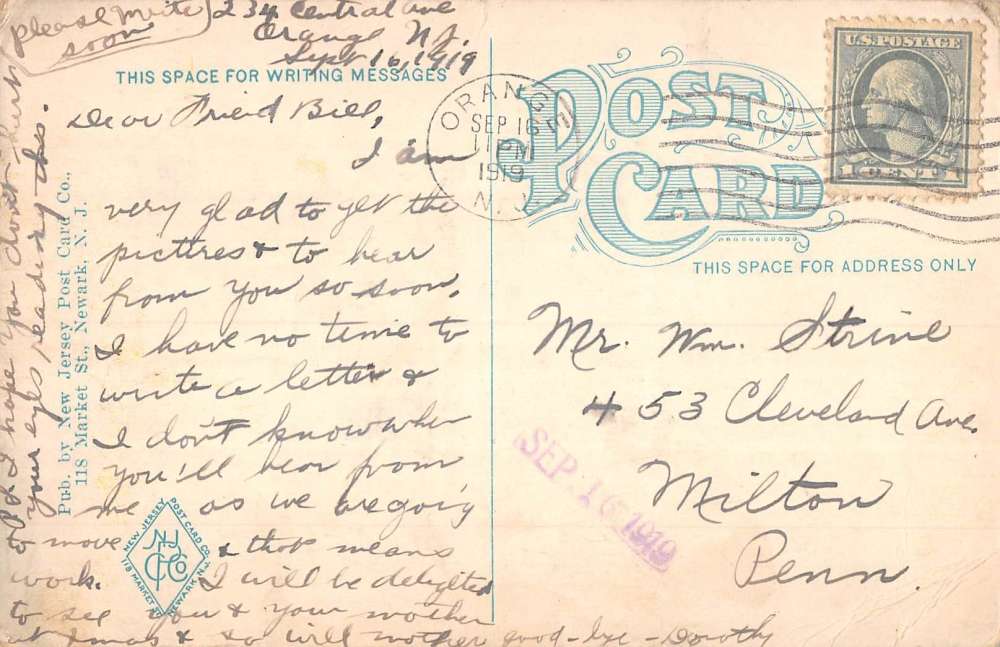 please write
soon
234 Central Ave
Orange N.J.
Sept 16, 1919
THIS SPACE FOR WRITING MESSAGES
Dear Friend Bill,
I am
very glad to get the
picttres & to hear
from you so soon.
I have no time to
write a letter &
I don't know when
you'll hear from
me as we are going
to move & that means
work. I will be delighted
to see you & your mother
at Xmas & so will mother good-bye - Dorothy
P.S. I hope you don't hurt
your eyes reading this.
Pub. by New Jersey Post Card Co.,
118 Market St., Newark, N. J.
NEW JERSEY POST CARD CO.
118 MARKET ST. NEWARK N.J.
NJ
PCCo
POST
CARD
ORANGE
SEP 16
11 PM
1919
N.J.
U.S. POSTAGE
1 CENT 1
THIS SPACE FOR ADDRESS ONLY
Mr. Wm. Strine
453 Cleveland Ave.
Milton
Penn.
SEP 16 1919